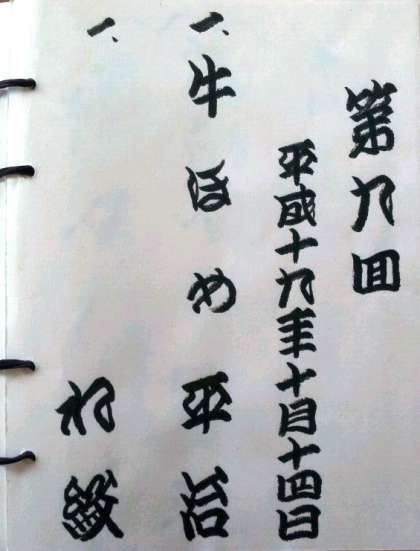 第九回
平成十九年十月十四日
一、牛ほめ 平治
一、